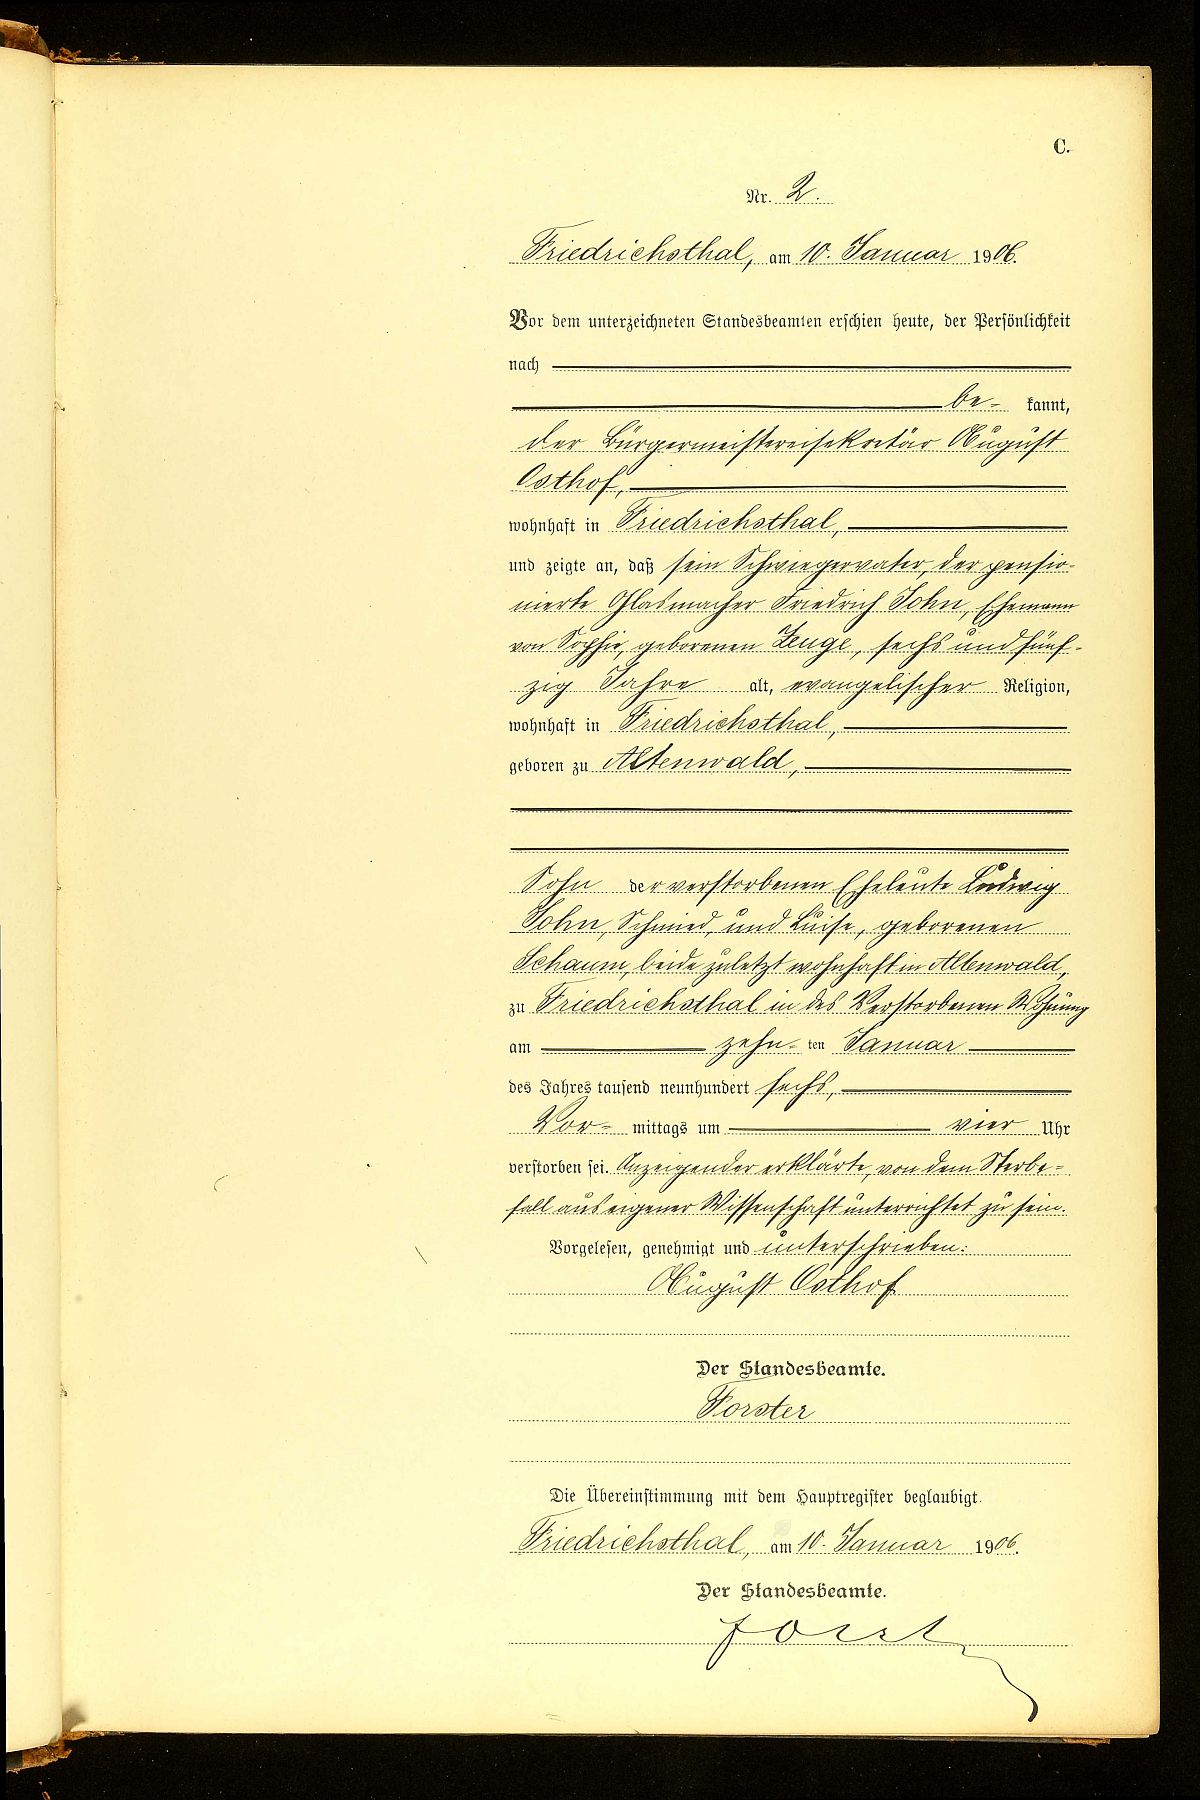 C.
Nr. 2.
Friedrichsthal, am 10. Januar 1906.
Vor dem unterzeichneten Standesbeamten erschien heute, der Persönlichkeit
nach
be- kannt,
der Bürgermeistereisekretär August
Osthof,
wohnhaft in Friedrichsthal,
und zeigte an, daß sein Schwiegervater, der pensio-
nierte Glasmacher Friedrich John, Ehemann
von Sophie, geborenen Zeuge, sechs und fünf-
zig Jahre alt, evangelischer Religion,
wohnhaft in Friedrichsthal,
geboren zu Altenwald,
Sohn der verstorbenen Eheleute Ludwig
John, Schmied, und Luise, geborenen
Schaum, beide zuletzt wohnhaft in Altenwald,
zu Friedrichsthal in des Verstorbenen Wohnung
am zehn- ten Januar
des Jahres tausend neunhundert sechs,
Vor- mittags um vier Uhr
verstorben sei. Anzeigender erklärte, von dem Sterbe-
fall aus eigener Wissenschaft unterrichtet zu sein.
Vorgelesen, genehmigt und unterschrieben:
August Osthof
Der Standesbeamte.
Forster
Die Übereinstimmung mit dem Hauptregister beglaubigt.
Friedrichsthal, am 10. Januar 1906.
Der Standesbeamte.
Forster